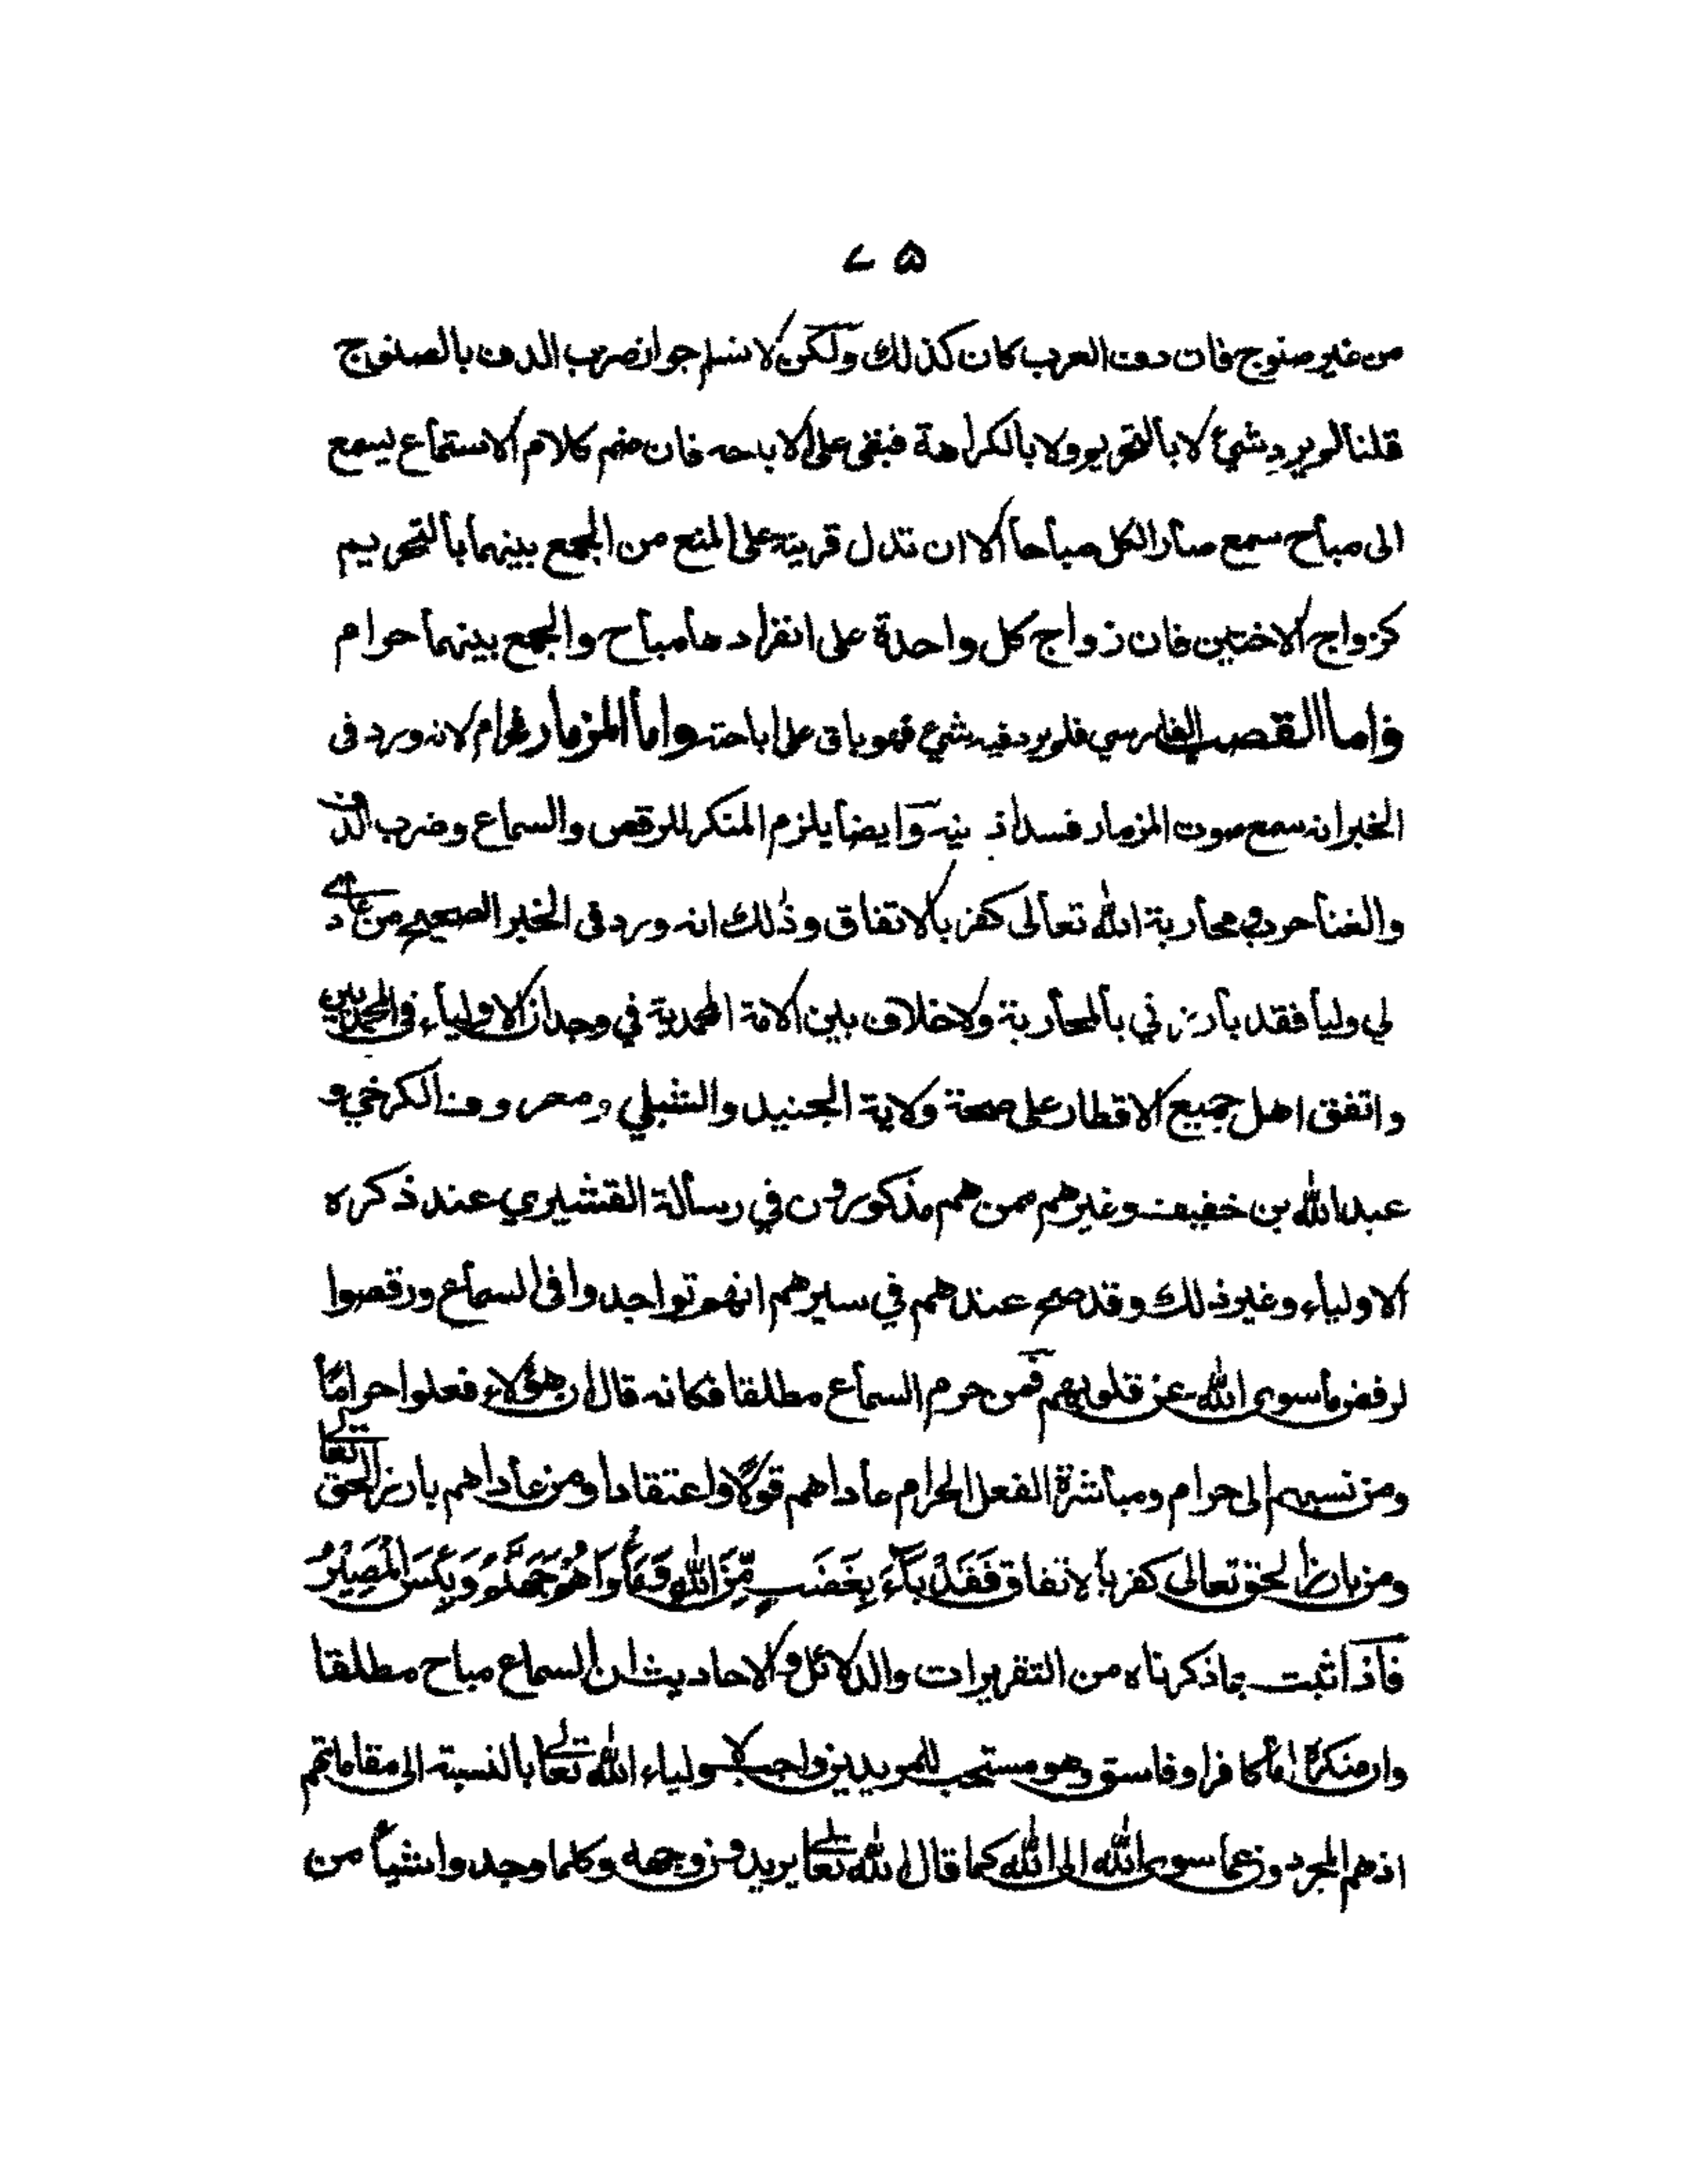 ۷۵
من غير صنوج فان دف العرب كان كذلك ولكن لا نسلم جواز ضرب الدف بالصنوج
قلنا لو يرد شيئ لا بالتحريم ولا بالكراهة فبقى على الا بلحه فان ضم كلام الاستماع ليسمع
الى مباح سمع صار الكل مباحا الا ان تدل قرينة على المنع من الجمع بينهما بالتحريم
كزواج الاختين فان زواج كل واحدة على انفراد ها مباح والجمع بينهما حرام
واما القصب الفارسي فلم يرد فيه شيئ فهو باق على اباحته واما المزمار فحرام لانه ورد فى
الخبر انه سمع صوت المزمار فسد اذ نيه وايضا يلزم المنكر للرقص والسماع وضرب الدف
والغنا حرب محاربة الله تعالى كفر بالاتفاق وذلك انه ورد فى الخبر الصحيح من عادى
لي وليا فقد بارزني بالمحاربة ولا خلاف بين الامة المحمدية في وجدان الاولياء فى المحمديين
واتفق اهل جميع الاقطار على صحة ولاية الجنيد والشبلي ومعروف الكرخي و
عبد الله بن خفيف وغيرهم ممن هم مذكورون في رسالة القشيري عند ذكره
الاولياء وغير ذلك وقد صح عندهم في سيرهم انهم تواجدوا فى السماع ورقصوا
لرفض ما سوى الله عن قلوبهم فمن حرم السماع مطلقا فكانه قال ان هؤلاء فعلوا حراما
ومن نسبهم الى حرام ومباشرة الفعل الحرام عاداهم قولا واعتقادا ومن عاداهم بارز الحق تعالى
ومن بارز الحق تعالى كفر بالاتفاق فَقَدْ بَآءَ بِغَضَبٍ مِّنَ اللهِ وَمَأْوَاهُ جَهَنَّمُ وَبِئْسَ الْمَصِيْرُ
فاذا ثبت بما ذكرناه من التقريرات والدلائل والاحاديث ان السماع مباح مطلقا
وان منكره اما كافر او فاسق وهو مستحب للمريدين واجب لاولياء الله تعالى بالنسبة الى مقاماتهم
اذ هم المجردون عما سوى الله الى الله كما قال الله تعالى يريدون وجهه وكلما وجدوا شيأ من